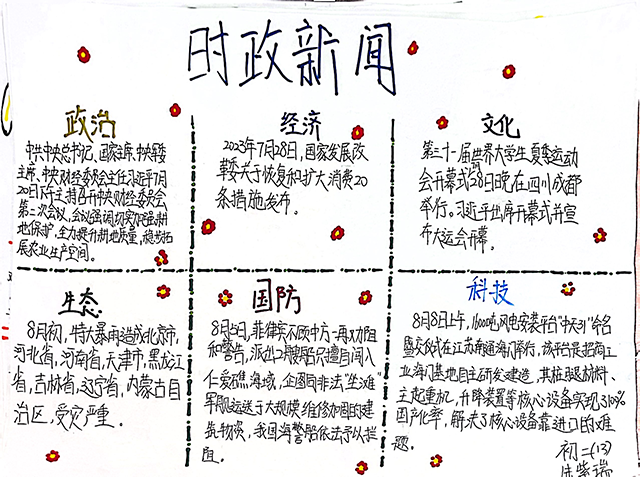 时政新闻
政治
中共中央总书记、国家主席、中央军委
主席、中央财经委员会主任习近平7月
20日下午主持召开中央财经委员会
第二次会议，会议强调切实加强耕
地保护，全力提升耕地质量，稳步拓
展农业生产空间。
经济
2023年7月28日，国家发展改
革委关于恢复和扩大消费20
条措施发布。
文化
第三十一届世界大学生夏季运动
会开幕式28日晚在四川成都
举行。习近平出席开幕式并宣
布大运会开幕。
生态
8月初，特大暴雨造成北京市，
河北省，河南省，天津市，黑龙江
省，吉林省，辽宁省，内蒙古自
治区，受灾严重。
国防
8月5日，菲律宾不顾中方一再劝阻
和警告，派出2艘船只擅自闯入
仁爱礁海域，企图向非法"坐滩"
军舰运送于大规模维修加固的建
筑物资，我国海警船依法予以拦
阻。
科技
8月8日上午，1600吨风电安装平台"中天31"命名
暨交付仪式在江苏南通海门举行，该平台是招商工
业海门基地自主研发建造，其桩腿材料、
主起重机，升降装置等核心设备实现100%
国产化率，解决了核心设备靠进口的难
题。
初二(13)